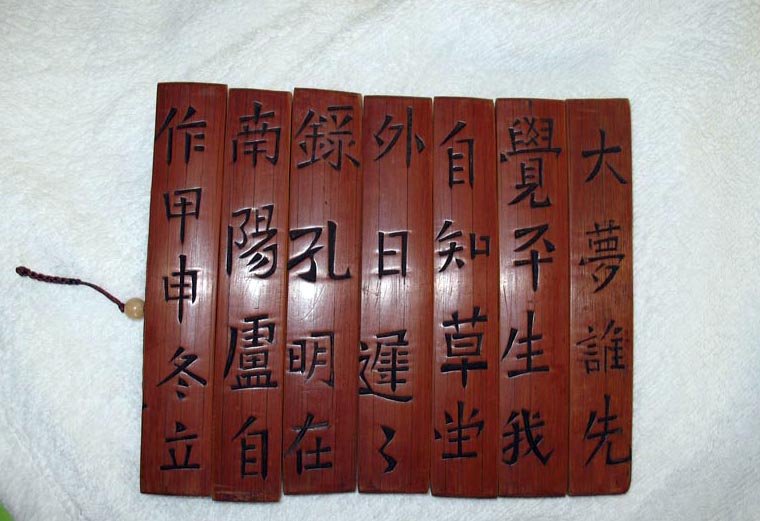 大夢誰先
覺平生我
自知草坣
外日遲々
錄孔明在
南陽盧自
作甲申冬立